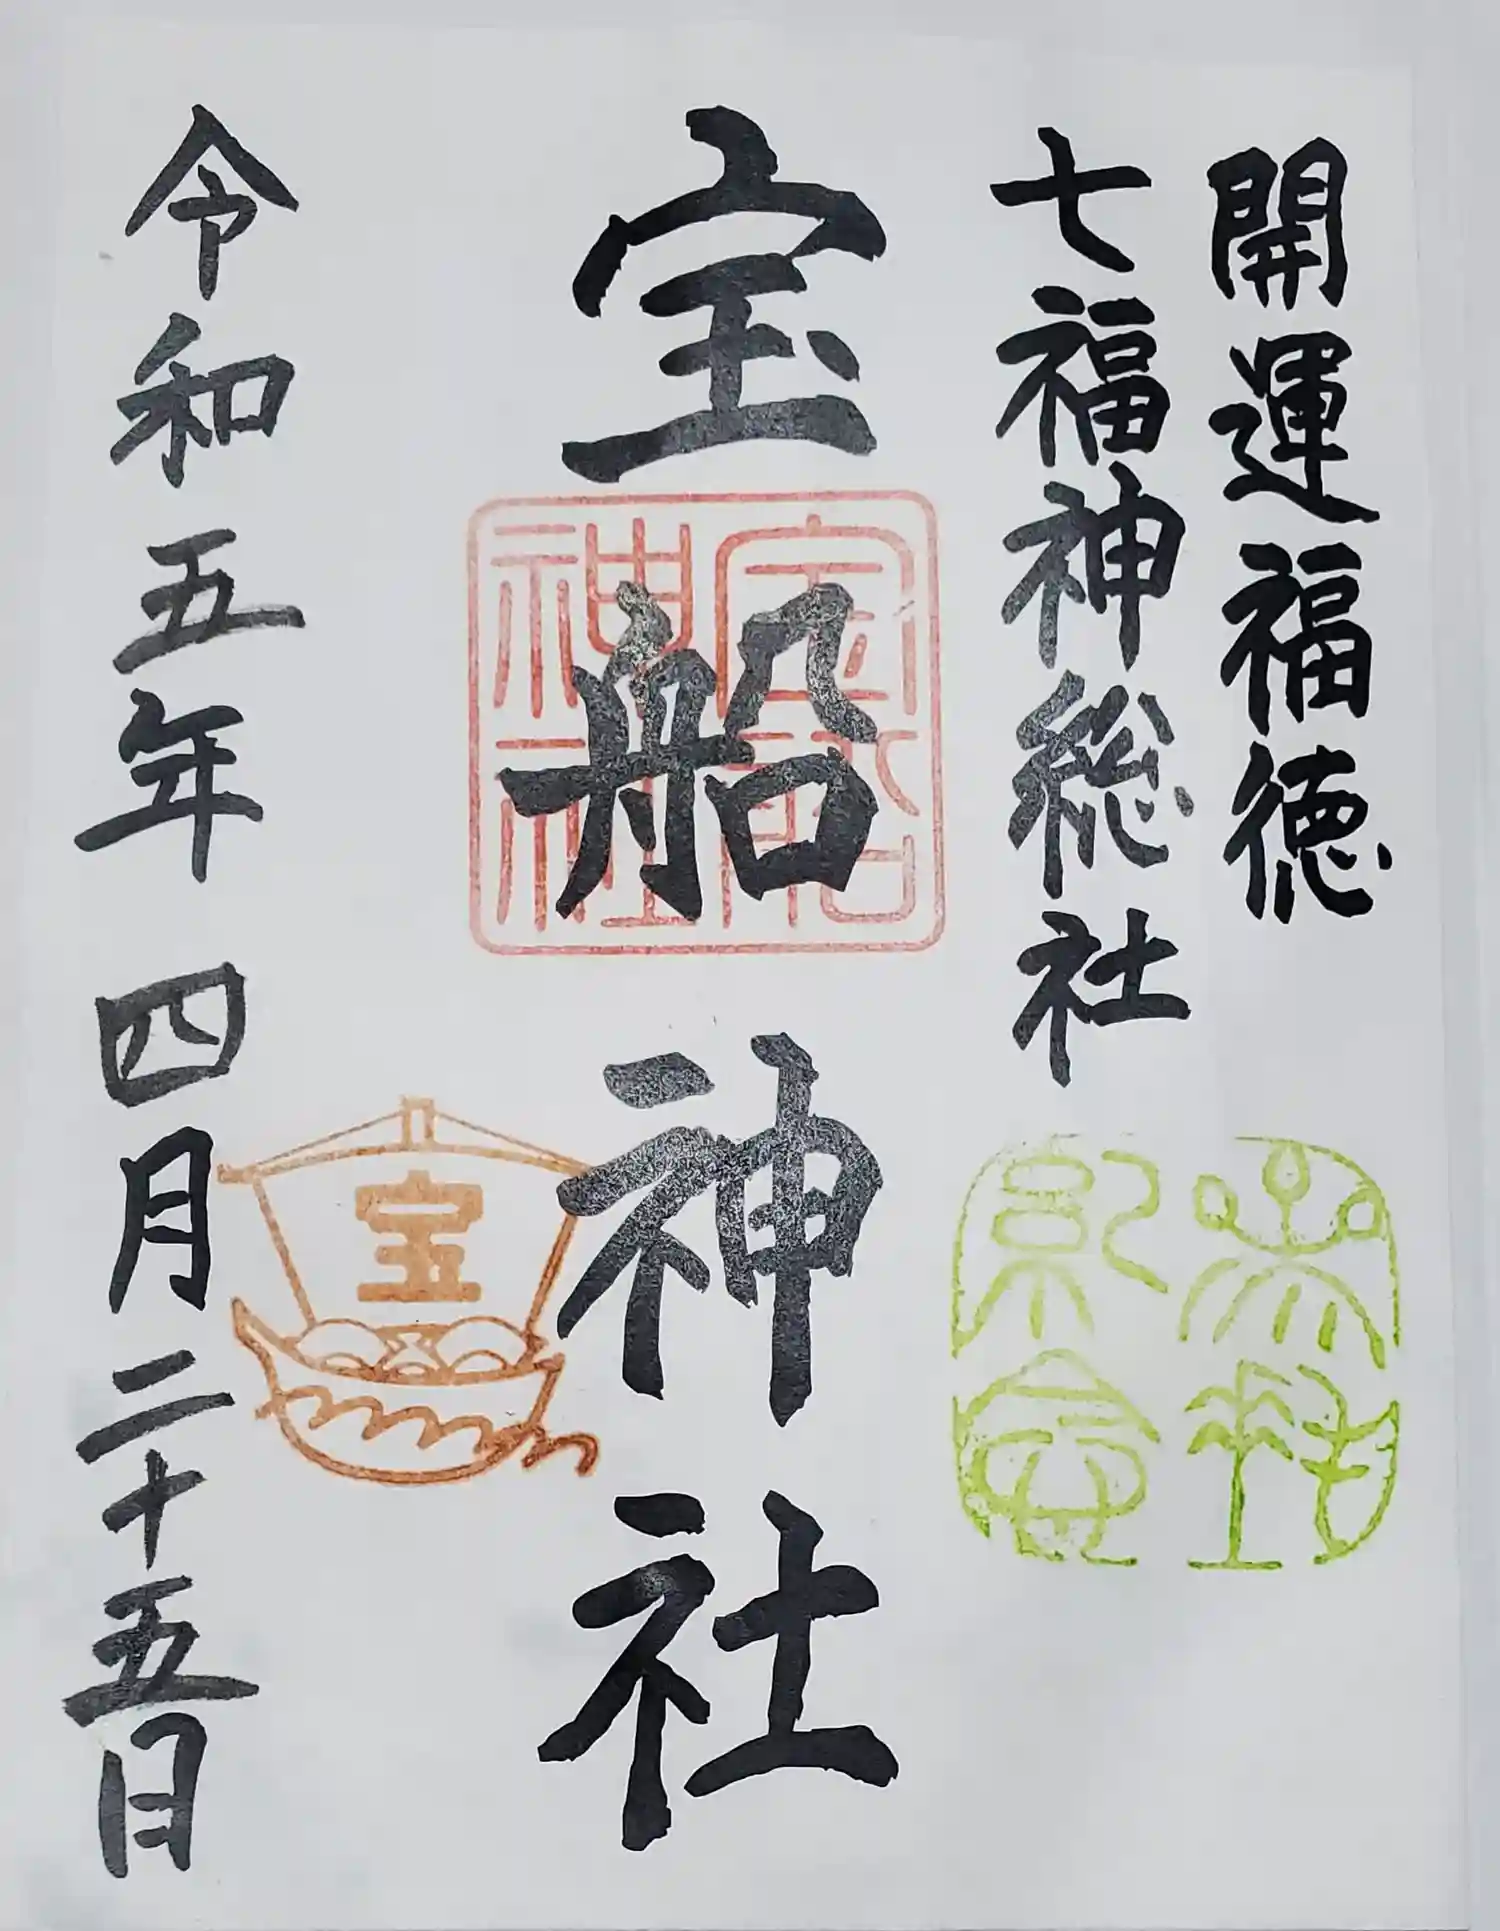 開運福徳
七福神総社
宝船神社
宝船神社
宝
令和五年 四月二十五日